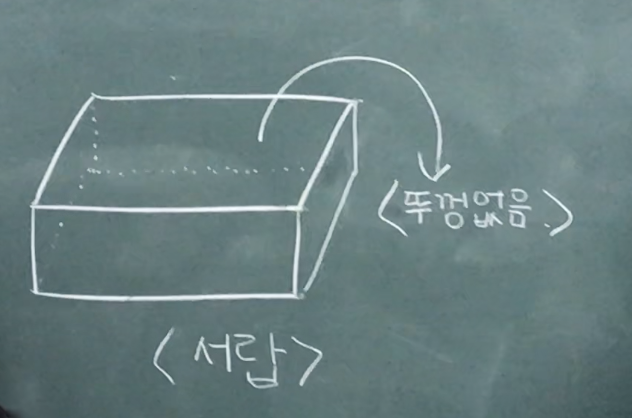 <뚜껑없음.>
<서랍>